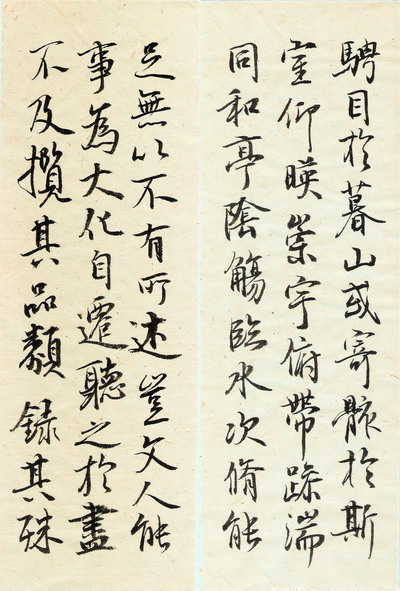 騁目於暮山或寄骸於斯
室仰暎崇宇俯帶踈湍
同和亭陰觴臨水次脩能
足無以不有所述豈文人能
事為大化自遷聽之於盡
不及攬其品類錄其殊